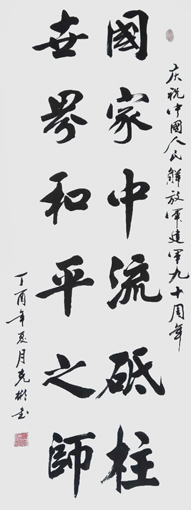 庆祝中國人民解放军建军九十周年
國家中流砥柱
世界和平之師
丁酉年夏月克彬书